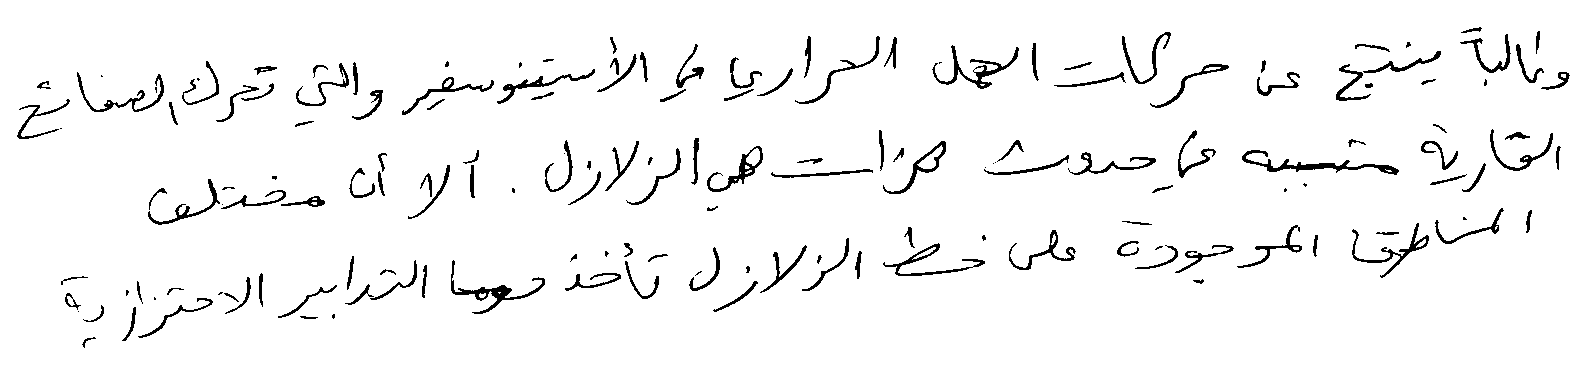 وغالباً ينتج عن حركات الحمل الحراري في الأستينوسفير والتي تحرك الصفائح
القارية متسببه في حدوث هزات هي الزلازل . ألا أن مختلف
المناطق الموجودة على خط الزلازل تأخذ التدابير الاحترازية